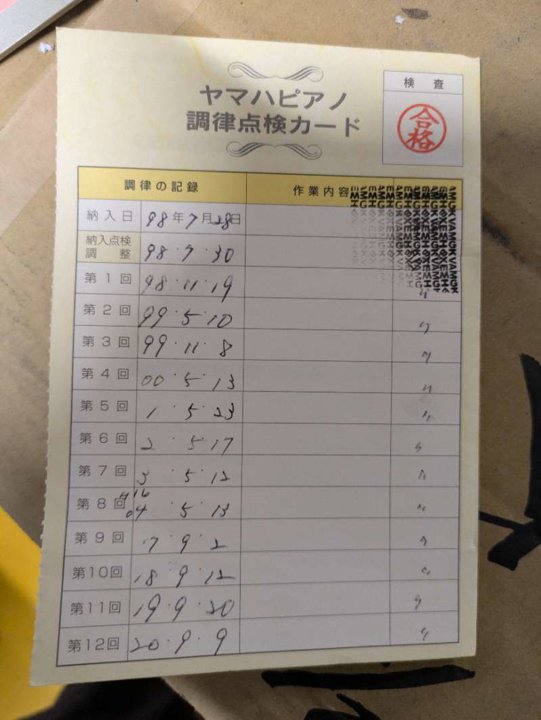 ヤマハピアノ
調律点検カード
検 査
合格
調律の記録 作業内容
納入日 98年7月28日
納入点検調整 98・7・30
第1回 98・11・19 〃
第2回 99・5・10 〃
第3回 99・11・8 〃
第4回 00・5・13 〃
第5回 1・5・23 〃
第6回 2・5・17 〃
第7回 3・5・12 〃
第8回 04・5・13 〃
第9回 17・9・2 〃
第10回 18・9・12 〃
第11回 19・9・20 〃
第12回 20・9・9 〃